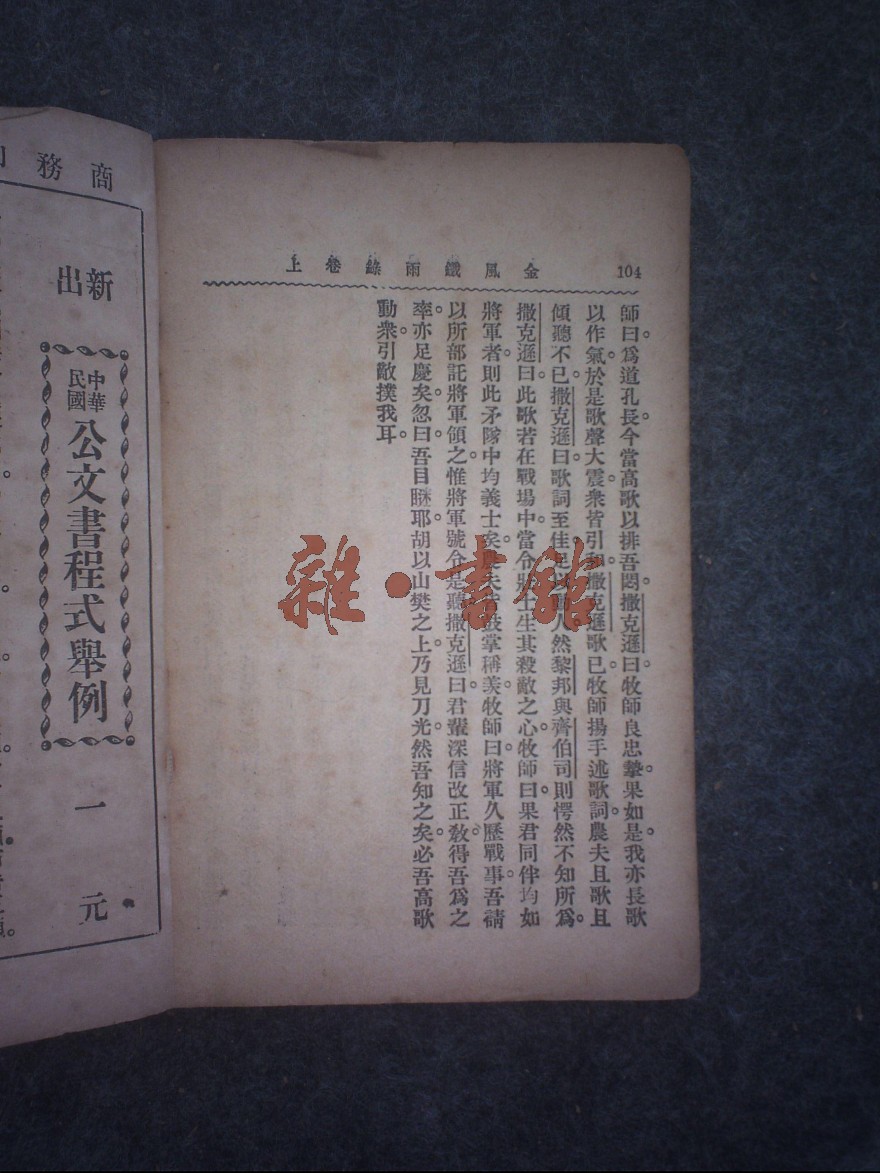 104
金風鐵雨錄卷上
師曰。爲道孔長。今當高歌以排吾悶。撒克遜曰。牧師良忠摯。果如是。我亦長歌
以作氣。於是歌聲大震。衆皆引和。撒克遜歌已。牧師揚手述歌詞。農夫且歌且
傾聽不已。撒克遜曰。歌詞至佳。足以動人。然黎邦與齊伯司則愕然不知所爲。
撒克遜曰。此歌若在戰場中。當令壯士生其殺敵之心。牧師曰。果君同伴均如
將軍者。則此矛隊中均義士矣。農夫皆鼓掌稱羨。牧師曰。將軍久歷戰事。吾請
以所部託將軍領之。惟將軍號令是聽。撒克遜曰。君輩深信改正敎。得吾爲之
率。亦足慶矣。忽曰。吾目瞇耶。胡以山樊之上。乃見刀光。然吾知之矣。必吾高歌
動衆。引敵撲我耳。
商務
新出
中華民國
公文書程式舉例
一元
雜·書館